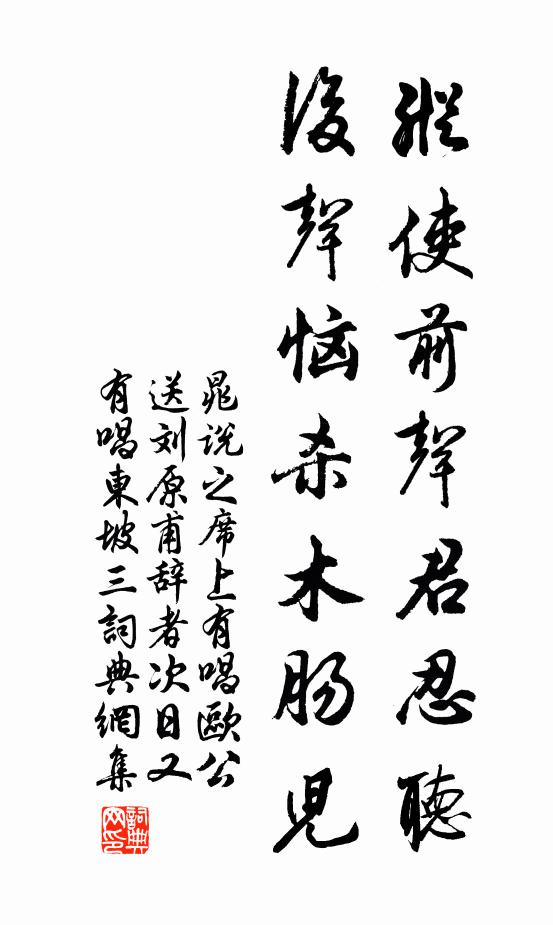 縱使前聲君忍聽
後聲惱杀木肠児
晁说之席上有唱歐公
送刘原甫辞者次日又
有唱東坡三詞典網集
詞典网印